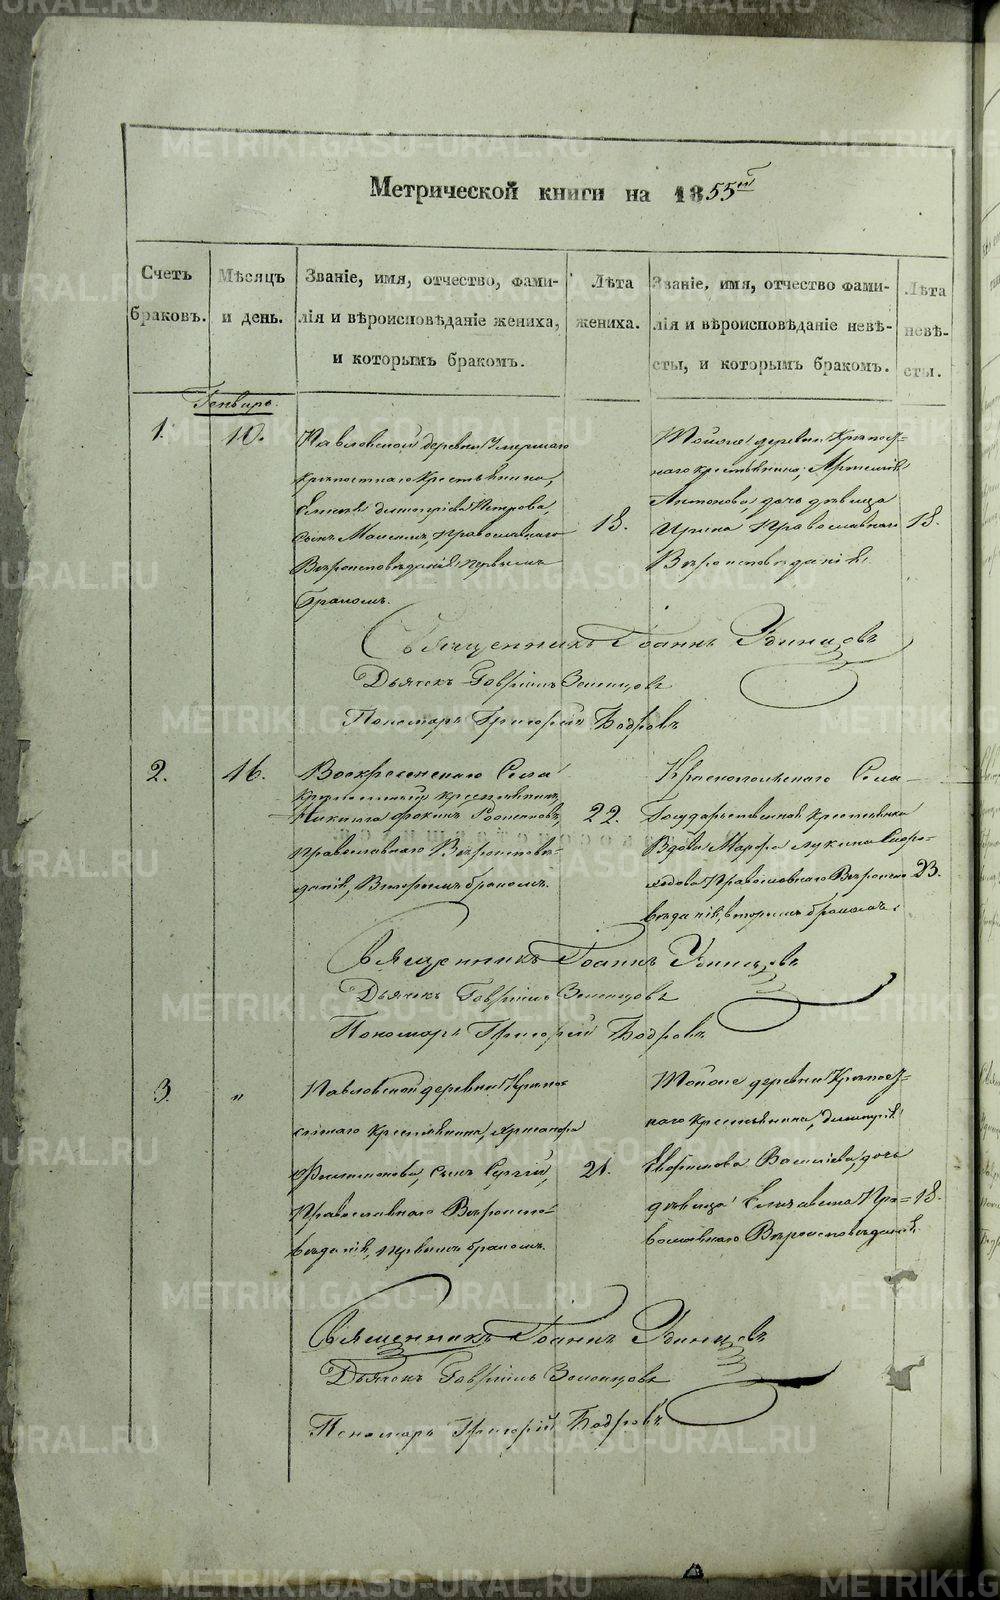 METRIKI.GASO-URAL.RU
Метрической книги на 1855й
Счетъ браковъ.
Мѣсяцъ и день.
Званіе, имя, отчество, фами-
лія и вѣроисповѣданіе жениха,
и которымъ бракомъ.
Лѣта жениха.
Званіе, имя, отчество фами-
лія и вѣроисповѣданіе невѣ-
сты, и которымъ бракомъ.
Лѣта невѣ-
сты.
Генварь.
1.
10.
Павловской деревни Умершаго
крѣпостнаго крестьянина,
Димитріева Петрова,
сынъ Максимъ, православнаго
Вѣроисповѣданія, первымъ
бракомъ.
18.
Тойже деревни Крѣпос-
наго крестьянина, Артемія
Антонова, дочь дѣвица
Ирина Православнаго
Вѣроисповѣданія.
18.
Священникъ Іоаннъ Удинцовъ
Дьячекъ Гавріилъ Зеленцовъ
Пономарь Григорій Бодровъ
2.
16.
Воскресенскаго Села
крѣпостный крестьянинъ,
Никита Фокинъ
православнаго Вѣроисповѣ-
данія, Вторымъ бракомъ.
22.
Краснопольскаго Села
Государственная крестьянка
Вдова Марфа Лукина Скоро-
ходова Православнаго Вѣроиспо-
вѣданія, вторымъ бракомъ.
23.
Священникъ Іоаннъ Удинцовъ
Дьячекъ Гавріилъ Зеленцовъ
Пономарь Григорій Бодровъ
3.
"
Павловской деревни Крѣпо-
стнаго крестьянина,
Филимонова, сынъ Сергій,
Православнаго Вѣроиспо-
вѣданія, первымъ бракомъ.
21.
Тойже деревни Крѣпос-
наго крестьянина, Димитрія
Васильева, дочь
дѣвица Елисавета Пра-
вославнаго Вѣроисповѣданія.
18.
Священникъ Іоаннъ Удинцовъ
Дьячекъ Гавріилъ Зеленцовъ
Пономарь Григорій Бодровъ